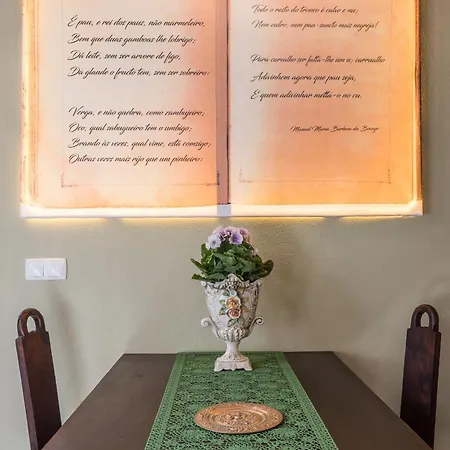 É pau, e rei dos paus, não marmeleiro;
Bem que duas gamboas lhe lobrigo;
Dá leite, sem ser arvore de figo,
Da glande o fructo tem, sem ser sobreiro:
Verga, e não quebra, como zambujeiro;
Oco, qual sabugueiro tem o umbigo;
Brando às vezes, qual vime, está comsigo;
Outras vezes mais rijo que um pinheiro:
Todo o resto do tronco é calvo e nu;
Nem cedro, nem pau-santo mais negreja!
Para carvalho ser falta-lhe um u;
Adivinhem agora que pau seja,
E quem adivinhar metta-o no cu.
Manuel Maria Barbosa du Bocage